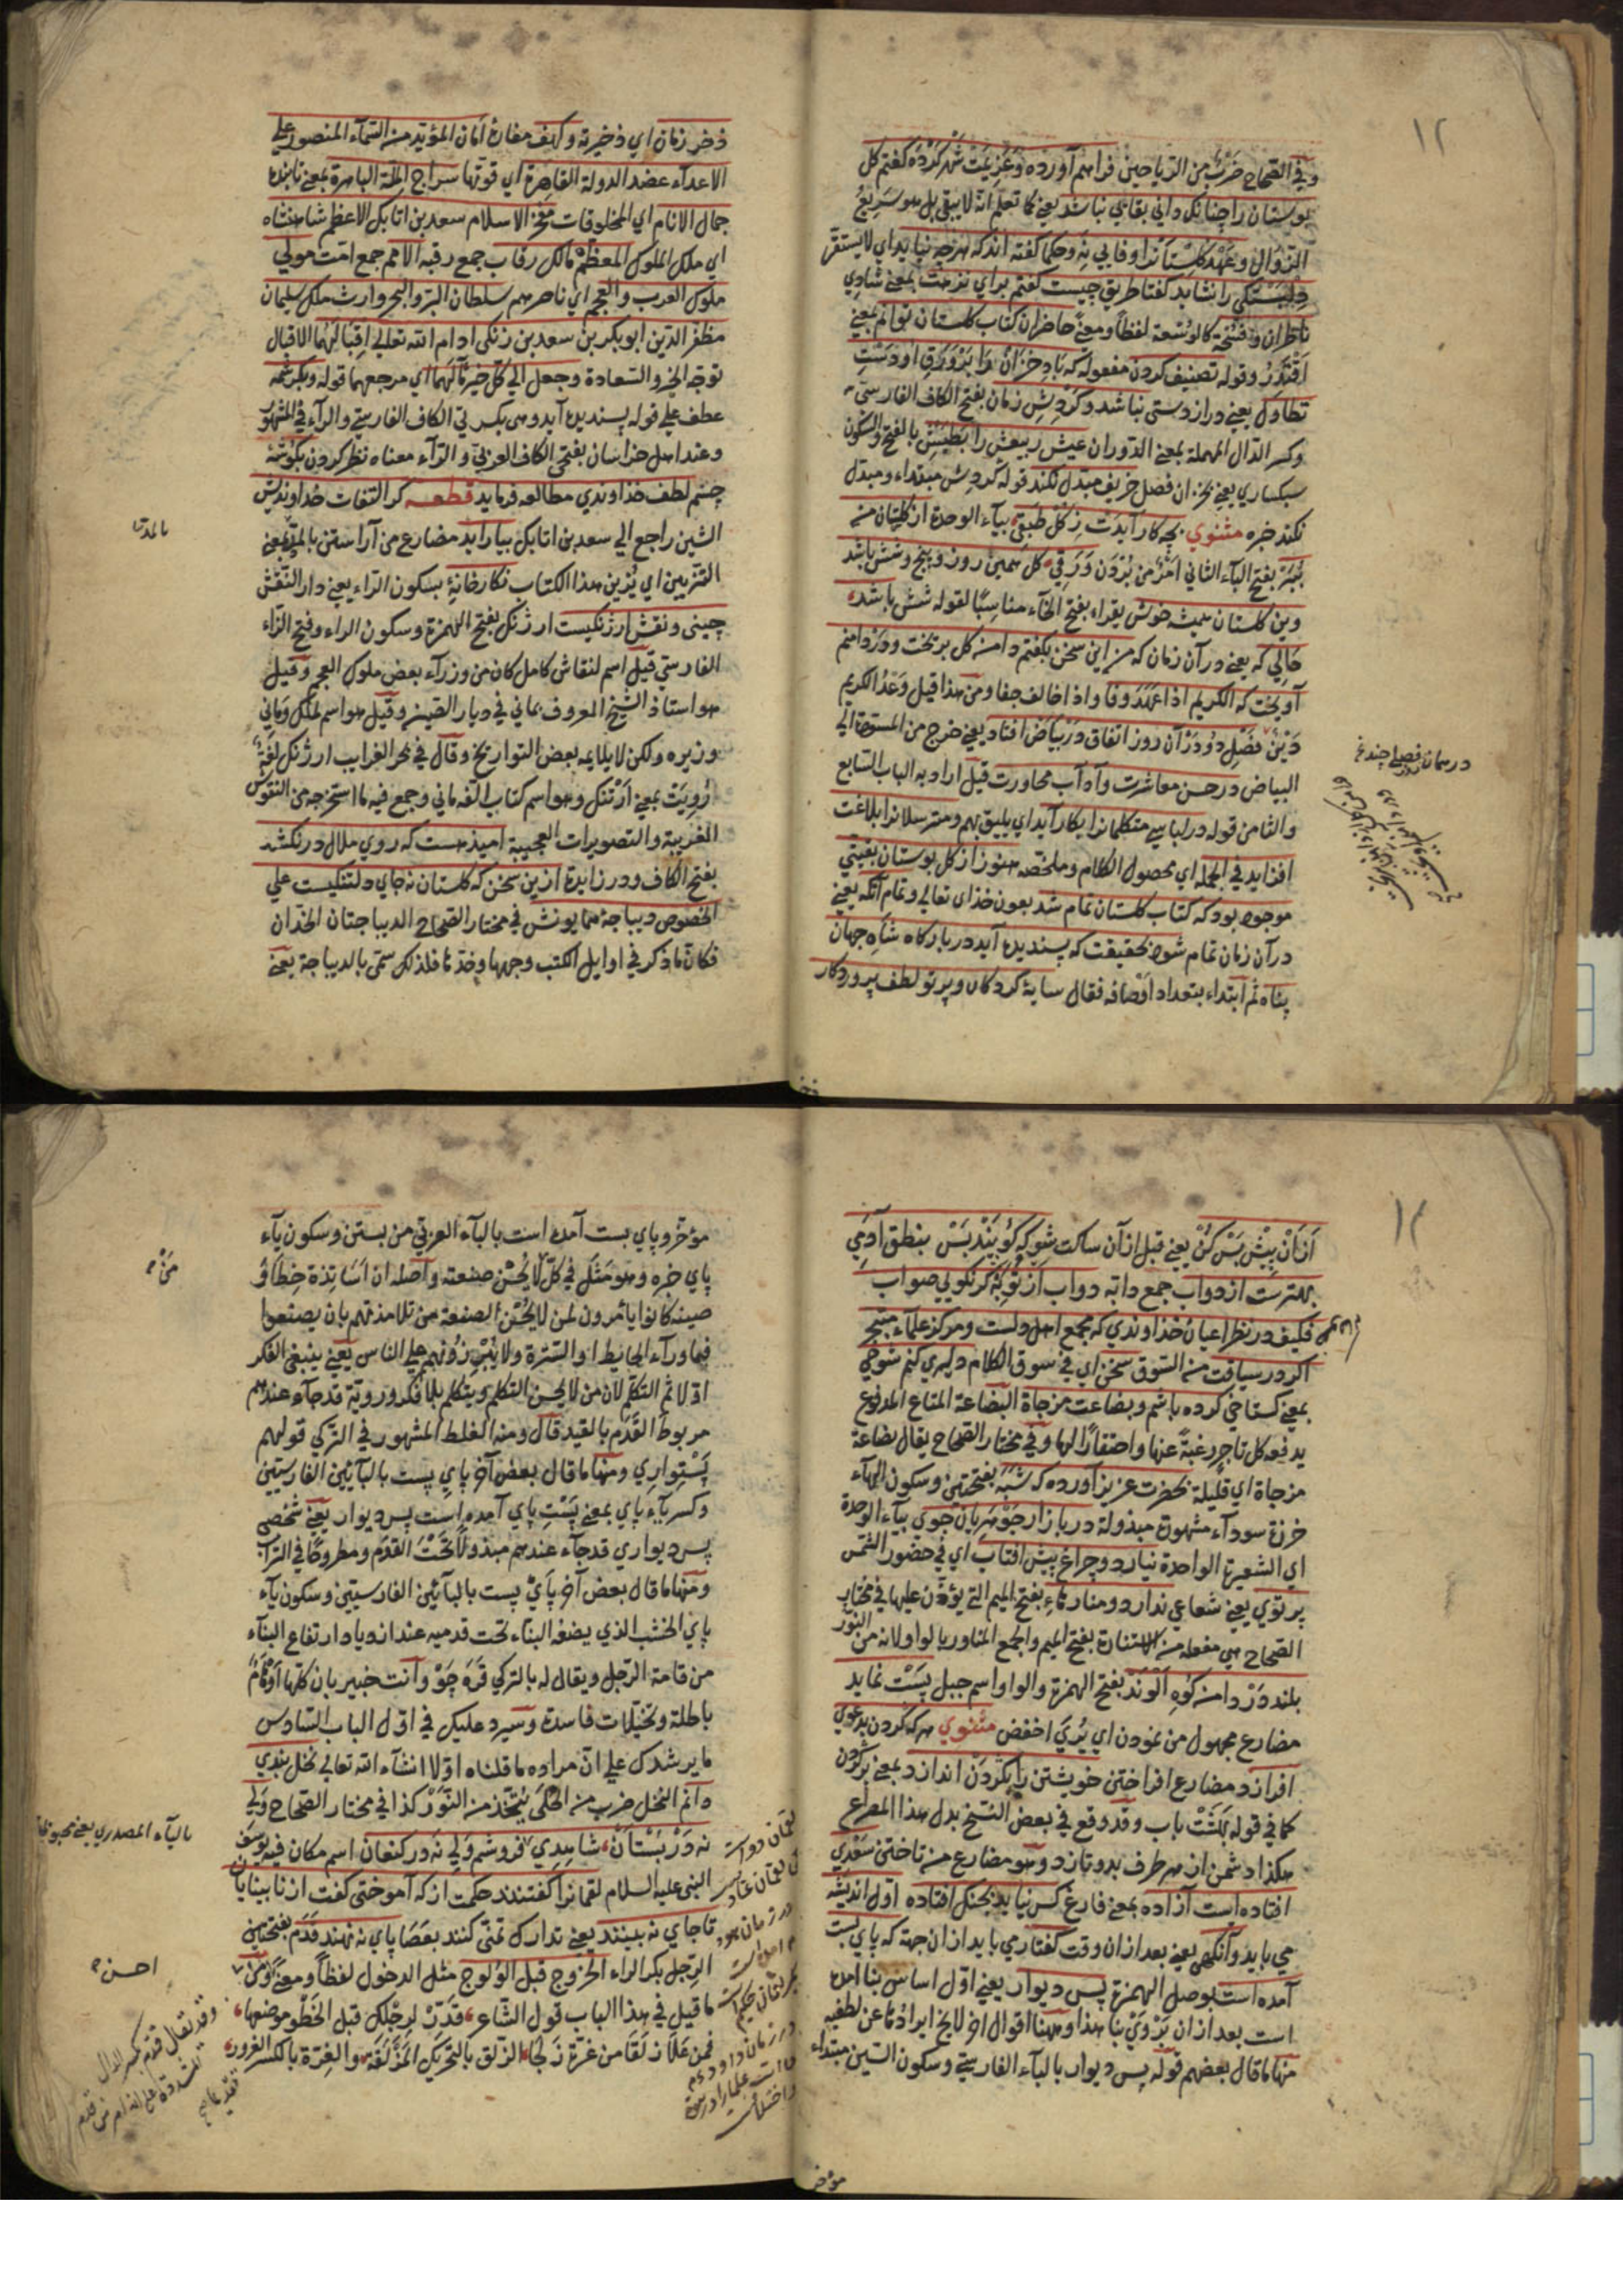 ١٢
وفي الصحاح ضرب من الرياحين فراهم آورده وعزيمت شهر كرده كفتم كل
بوستان را چنانكه داني بقايي نباشد يعني كما تعلم انه لا يبقى بل هو سريع
الزوال وعهد كلستانرا وفايي نه وحكما كفته اندكه هرچه نپايد اي لا يستقر
دلبستكي را نشايد كفتا طريق چيست كفتم براي نزهت بمعني شادي
ناظران وفسحة كالوسعة لفظا ومعنى حاضران كتاب كلستان توانم بمعني
اقتدر وقوله تصنيف كردن مفعوله كه باد خزان را بر ورق او دست
تطاول يعني دراز دستي نباشد وكردش زمان بفتح الكاف الفارسي
وكسر الدال المهملة بمعني الدوران عيش ربيعش را بطيش بالفتح والسكون
سبكساري يعني بخزان فصل خريف مبدل نكند قوله كردش مبتداء ومبدل
نكند خبره مثنوي بچه كار آيدت ز كل طبقي بياء الوحدة از كلستان من
ببر بفتح الباء الثاني امر من بردن ورقي كل همين روز وپنج وشش باشد
وين كلستان هميشه خوش يقراء بفتح الخاء مناسبا لقوله شش باشد
حالي كه يعني در آن زمان كه من اين سخن بكفتم دامن كل بريخت ودر دامنم
آويخت كه الكريم اذا عهد وفا واذا خالف جفا ومن هذا قيل وعد الكريم
دين فصل دو در آن روز اتفاق در بياض افتاد يعني خرج من المسودة الي
البياض در حسن معاشرت وآداب محاورت قيل اراد به الباب السابع
والثامن قوله در لباسي متكلمانرا بكار آيد اي يليق بهم ومترسلانرا بلاغت
افزايد في الجمله اي محصول الكلام وملخصه هنوز از كل بوستان بقيتي
موجود بود كه كتاب كلستان تمام شد بعون خداي تعالي وتمام آنكه يعني
در آن زمان تمام شود بحقيقت كه پسنديده آيد در باركاه شاه جهان
پناه ثم ابتداء بتعداد اوصافه فقال سايۀ كردكار وپرتو لطف پروردكار
ذخر زمان اي ذخيرته وكهف مغارة امان المؤيد من السماء المنصور علي
الاعداء عضد الدولة القاهرة اي قوتها سراج الملة الباهرة بمعني تابنده
جمال الانام اي المخلوقات مفخر الاسلام سعد بن اتابك الاعظم شاهنشاه
اي ملك الملوك المعظم مالك رقاب جمع رقبه الامم جمع امت مولي
ملوك العرب والعجم اي ناصرهم سلطان البر والبحر وارث ملك سليمان
مظفر الدين ابو بكر بن سعد بن زنكي ادام الله تعالي اقبالهما الاقبال
توجه الخير والسعادة وجعل الي كل خير مآلهما اي مرجعهما قوله وبكرشمه
عطف علي قوله پسنديده آيد وهي بكسرتي الكاف الفارسي والراء في المشهور
وعند اهل خراسان بفتحتي الكاف العربي والراء معناه نظر كردن بكوشۀ
چشم لطف خداوندي مطالعه فرمايد قطعه كر التفات خداونديش
الشين راجع الي سعد بن اتابك بيارايد مضارع من آراستن بالمد بمعني
التزيين اي يزين هذا الكتاب نكارخانۀ بسكون الراء يعني دار النقش
چيني ونقش ارژنكيست ارژنك بفتح الهمزة وسكون الراء وفتح الزاء
الفارسي قيل اسم لنقاش كامل كان من وزراء بعض ملوك العجم وقيل
هو استاذ الشيخ المعروف بماني في ديار الصين وقيل هو اسم لملك وماني
وزيره ولكن لا يلايمه بعض التواريخ وقال في بحر الغرايب ارژنك لغة
رويت بمعني ارتنك وهو اسم كتاب الفه ماني وجمع فيه ما استخرجه من النقوش
الغريبة والتصويرات العجيبة اميد هست كه روي ملال در نكشد
بفتح الكاف ودر زايدة ازين سخن كه كلستان نه جاي دلتنكيست علي
الخصوص ديباجۀ همايونش في مختار الصحاح الديباجتان الخدان
فكان ما ذكر في اوايل الكتب وجهها وخدها فلذلك سمي بالديباجة يعني
بالمد
١٣
از آن پيش بس كن يعني قبل از آن ساكت شو كه كويند بس بنطق آدمي
بهترست از دواب جمع دابه دواب از تو به كر نكويي صواب
فكيف در نظر اعيان خداوندي كه مجمع اهل دلست ومركز علماء متبحر
اكر در سياقت من السوق سخن اي في سوق الكلام دليري كنم شوخي
بمعني كستاخي كرده باشم وبضاعت مزجاة البضاعة المتاع المدفوع
يدفعه كل تاجر رغبة عنها واحتقارا لها وفي مختار الصحاح يقال بضاعة
مزجاة اي قليلة بحضرت عزيز آورده كه شبه بفتحتين وسكون الهاء
خرزة سوداء مشهورة مبذولة در بازار جوهريان جوي بياء الوحدة
اي الشعيرة الواحدة نيارد وچراغ پيش افتاب اي في حضور الشمس
پرتوي يعني شعاعي ندارد ومنارۀ بفتح الميم التي يؤذن عليها في مختار
الصحاح هي مفعلة من الاستنارة بفتح الميم والجمع المناور بالواو لانه من النور
بلند در دامن كوه الوند بفتح الهمزة والواو اسم جبل پست نمايد
مضارع مجهول من نمودن اي يري اخفض مثنوي هر كه كردن بدعوي
افرازد مضارع افراختن خويشتن را بكردن اندازد بمعني بر كردن
كما في قوله بهشت باب وقد وقع في بعض النسخ بدل هذا المصراع
هكذا دشمن از هر طرف بدو تازد وهو مضارع من تاختن سعدي
افتاده است آزاده بمعني فارغ كس نيايد بجنك افتاده اول انديشه
مي بايد وآنكهي يعني بعد از آن وقت كفتار مي بايد از آن جهة كه پاي بست
آمده است بوصل الهمزة پس ديوار يعني اول اساس بنا آمده
است بعد از آن يروي بنا هذا وههنا اقوال اخر لا يخ ايرادها عن لطفيه
منها ما قال بعضهم قوله پس ديوار بالباء الفارسي وسكون السين مبتداء
مؤخر وپاي بست آمده است بالباء العربي من بستن وسكون ياء
پاي خبره وهو مثل في كل لا يحسن صنعته واصله ان اساتذة خطاؤ
صينه كانوا يأمرون لمن لا يحسن الصنعة من تلامذتهم بان يصنعوا
فيما وراء الحايط او السترة ولا يبرزونهم علي الناس يعني ينبغي الفكر
اولا ثم التكلم لان من لا يحسن التكلم ويتكلم بلا فكر وروية قد جاء عندهم
مربوط القدم بالقيد قال ومنه الغلط المشهور في التركي قولهم
پستواري ومنها ما قال بعض آخر پاي پست بالبائين الفارسيتين
وكسر ياء پاي بمعني پست پاي آمده است پس ديوار يعني شخصي
پس ديواري قد جاء عندهم مبذولا تحت القدم ومطروحا في التراب
ومنها ما قال بعض آخر پاي پست بالبائين الفارسيتين وسكون ياء
پاي الخشب الذي يضعه البناء تحت قدميه عند ازدياد ارتفاع البناء
من قامة الرجل ويقال له بالتركي قره چو وانت خبير بان كلها اوهام
باطلة وتخيلات فاسدة وسيرد عليك في اول الباب السادس
ما يرشدك علي ان مراده ما قلناه اولا انشاء الله تعالي نخل بندي
دانم النخل ضرب من الحلي يتخذ من النور كذا في مختار الصحاح ولي
نه در بستان شاهدي فروشم ولي نه در كنعان اسم مكان فيه يوسف
النبي عليه السلام لقمانرا كفتند حكمت از كه آموختي كفت از نابينايان
تا جاي نه بينند يعني تدارك تمني كنند بعصا پاي نه نهند قدم بفتحتين
الرجل بكسر الراء الخروج قبل الولوج مثل الدخول لفظا ومعنى ومن
ما قيل في هذا الباب قول الشاعر قدر لرجلك قبل الخطو موضعها
فمن علا زلقا من غرة زلجا الزلق بالتحريك المزلقة والغرة بالكسر الغرور
بالياء المصدري يعني محبوبي
احسن